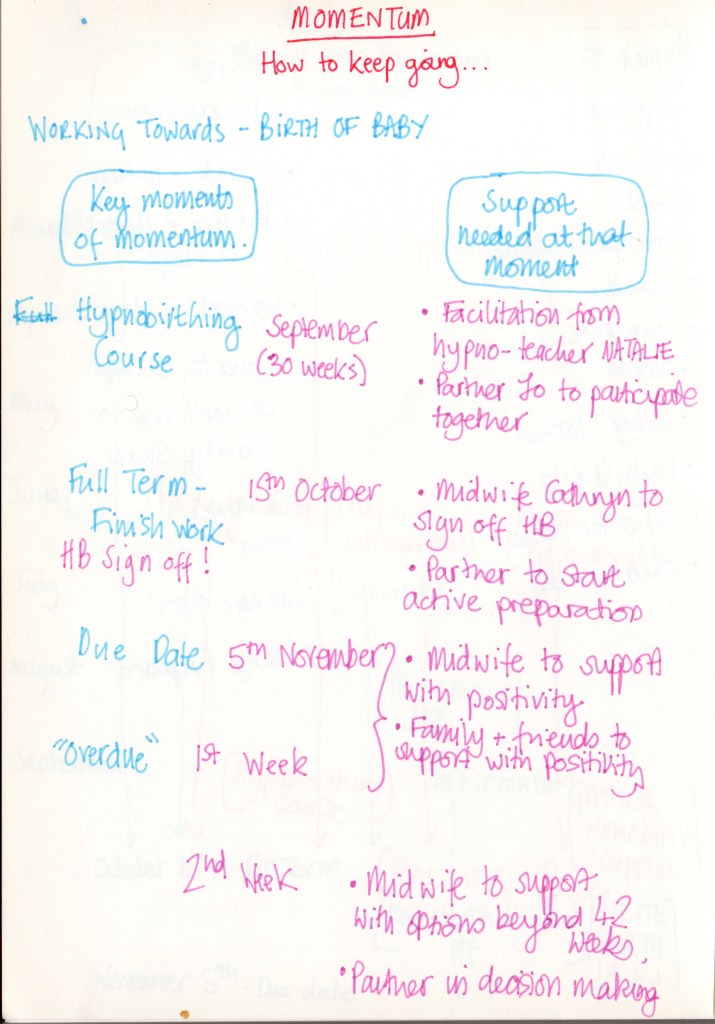 MOMENTUM
How to keep going...
WORKING Towards - BIRTH OF BABY
Key moments
of momentum.
Support
needed at that
moment
Full Hypnobirthing
Course
September
(30 weeks)
• Facilitation from
hypno-teacher NATALIE
• Partner Jo to participate
together
Full Term -
Finish work
HB Sign off!
15th October
• Midwife Cathryn to
sign off HB
• Partner to start
active preparation
Due Date 5th November
• Midwife to support
with positivity
• Family + friends to
support with positivity
"Overdue" 1st Week
2nd Week
• Midwife to support
with options beyond 42
weeks,
• Partner in decision making